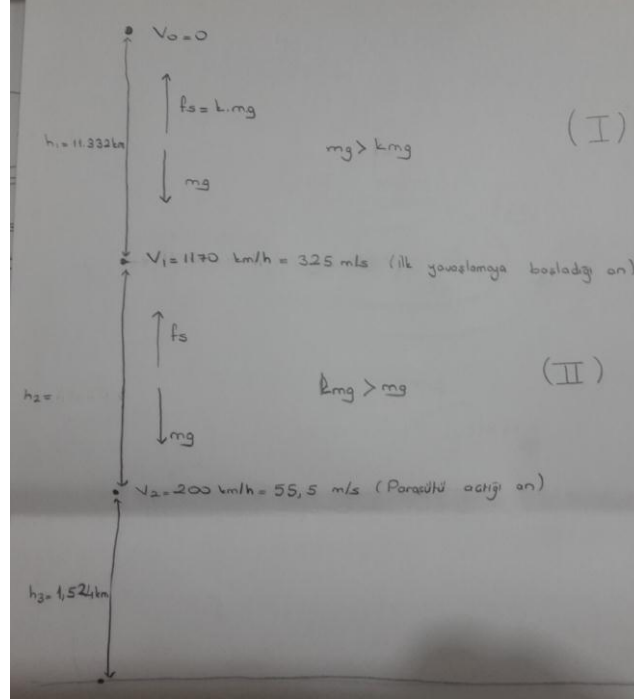 V₀=0
fs= k.mg
(I)
h₁=11.332km
mg > kmg
mg
V₁=1170 km/h = 325 m/s (ilk yavaşlamaya başladığı an)
fs
(II)
kmg > mg
h₂=
mg
V₂=200 km/h= 55,5 m/s (Paraşütü açtığı an)
h₃=1,524km